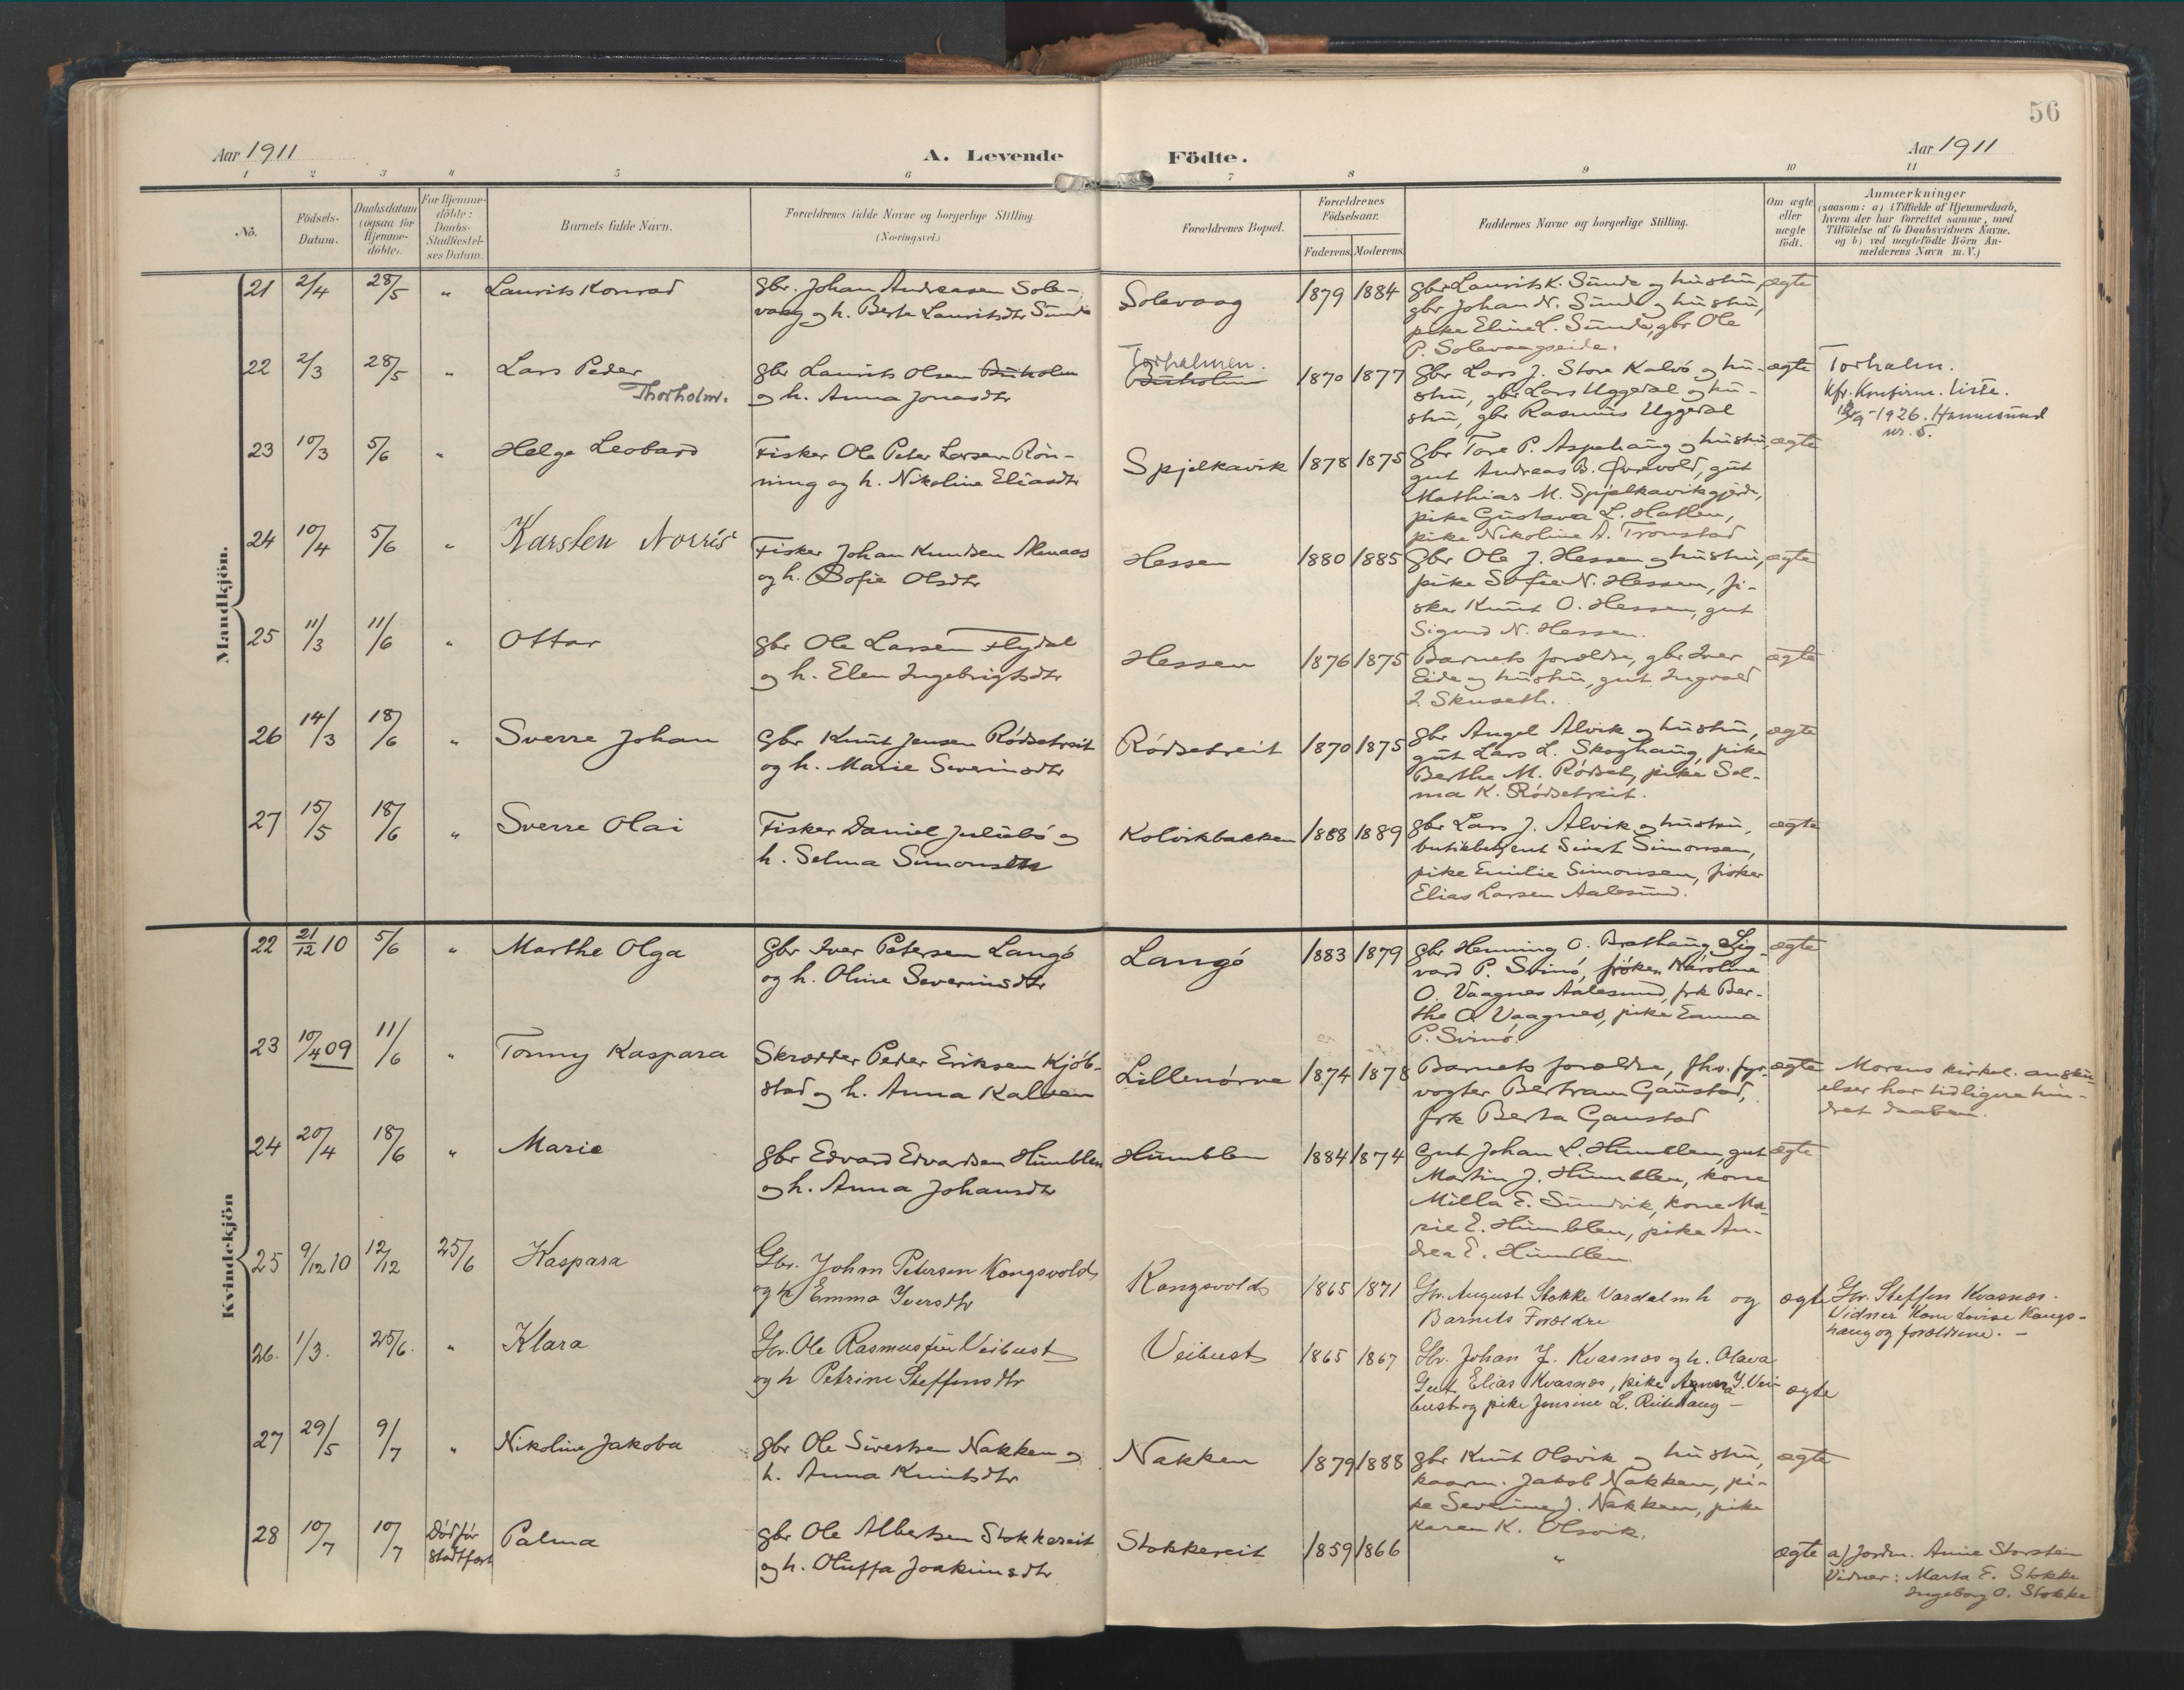 56
Aar 1911
A. Levende Födte.
Aar 1911
1 2 3 4 5 6 7 8 9 10 11
No.
Födsels-
Datum.
Daabsdatum
(ogsaa for
Hjemme-
döbte).
For Hjemme-
döbte:
Daabs-
Stadfæstel-
ses Datum.
Barnets fulde Navn.
Forældrenes fulde Navne og borgerlige Stilling.
(Næringsvei.)
Forældrenes Bopæl.
Forældrenes
Födselsaar.
Faderens. Moderens.
Faddernes Navne og borgerlige Stilling.
Om ægte
eller
uægte
födt.
Anmærkninger
(saasom: a) i Tilfælde af Hjemmedaab,
hvem der har forrettet samme, med
Tilföielse af to Daabsvidners Navne,
og b) ved uægtefödte Börn An-
melderens Navn m. V.)
Mandkjön.
21 2/4 28/5 " Laurits Konrad
gbr. Johan Andreasen Sole-
vaag og h. Berte Lauritsdtr Sunde
Solevaag 1879 1884
gbr Laurits K. Sunde og hustru,
gbr Johan N. Sunde og hustru,
pike Eline L. Sunde, gbr Ole
P. Solevaagseide.
ægte
22 2/3 28/5 " Lars Peder
Thorholm.
gbr Laurits Olsen Buholm
og h. Anna Jonasdtr
Torholmen.
Buholm 1870 1877
gbr Lars J. Store Kalvö og hu-
stru, gbr Lars Uggedal og hu-
stru, gbr Rasmus Uggedal
ægte
Torholm.
Kfr. Konfirm. liste.
/9-1926. Hamnsund
nr. 5.
23 10/3 5/6 " Helge Leobard
Fisker Ole Peter Larsen Rön-
ning og h. Nikoline Eliasdtr
Spjelkavik 1878 1875
gbr Tore P. Aspehaug og hustru,
gut Andreas B. Övrevold, gut
Mathias M. Spjelkavikgjerde,
pike Gustava L. Hatlen,
pike Nikoline A. Tronstad
ægte
24 10/4 5/6 " Karsten Norris
Fisker Johan Knudsen Almaas
og h. Sofie Olsdtr
Hessen 1880 1885
gbr Ole J. Hessen og hustru,
pike Sofie N. Hessen, fi-
sker Knut O. Hessen, gut
Sigurd N. Hessen.
ægte
25 11/3 11/6 " Ottar
gbr Ole Larsen Flydal
og h. Elen Ingebrigtsdtr
Hessen 1876 1875
Barnets forældre, gbr Iver
Eide og hustru, gut Ingvald
I. Skuseth.
ægte
26 14/3 18/6 " Sverre Johan
gbr Knut Jensen Rödsetreit
og h. Marie Severinsdtr
Rödsetreit 1870 1875
gbr Angel Alvik og hustru,
gut Lars L. Skoghaug, pike
Berthe M. Rödset, pike Sel-
ma K. Rödsetreit.
ægte
27 15/5 18/6 " Sverre Olai
Fisker Daniel Juliebö og
h. Selma Simonsdtr
Kolvikbakken 1888 1889
gbr Lars J. Alvik og hustru,
butikbetjent Sivert Simonsen,
pike Emilie Simonsen, fisker
Elias Larsen Aalesund.
ægte
Kvindekjön
22 21/12 10 5/6 " Marthe Olga
gbr Iver Petersen Langö
og h. Oline Severinsdtr
Langö 1883 1879
gbr Henning O. Brathaug, Sig-
vard P. Svinö, fröken Karoline
O. Vaagnes Aalesund, frk Ber-
the O. Vaagnes, pike Emma
P. Svinö.
ægte
23 10/4 09 11/6 " Tonny Kaspara
Skrædder Peder Eriksen Kjöb-
stad og h. Anna Kalven
Lillenörve 1874 1878
Barnets forældre, fhv. fyr-
vogter Bertram Gaustad,
frk Berta Gaustad
ægte
Morens kirkel. ansku-
elser har tidligere hin-
dret daaben.
24 20/4 18/6 " Marie
gbr Edvard Edvardsen Humblen
og h. Anna Johansdtr
Humblen 1884 1874
gut Johan L. Humblen, gut
Martin J. Humblen, kone
Milla E. Sundvik, kone Ma-
rie E. Humblen, pike An-
drea E. Humblen.
ægte
25 9/12 10 12/12 25/6 Kaspara
Gbr. Johan Petersen Kongsvold
og h Emma Iversdtr
Kongsvold 1865 1871
Gbr. August Stokke Vardal m h og
Barnets Forældre
ægte
Gbr. Steffen Kvasnes.
Vidner Kone Lovise Kongs-
haug og forældrene. -
26. 1/3. 25/6. " Klara
Gbr. Ole Rasmussen Veibust
og h Petrine Steffensdtr
Veibust 1865 1867
Gbr. Johan J. Kvasnes og h. Olava
Gut Elias Kvasnes, pike Agnes J. Vei-
bust og pike Jensine L. Reitehaug -
ægte
27 29/5 9/7 " Nikoline Jakoba
gbr Ole Sivertsen Nakken og
h. Anna Knutsdtr
Nakken 1879 1888
gbr Knut Olsvik og hustru,
kaarm. Jakob Nakken, pi-
ke Severine J. Nakken, pike
Karen K. Olsvik.
ægte
28 10/7 10/7 Död för
stadfæst
Palma
gbr Ole Albertsen Stokkereit
og h. Oluffa Joakimsdtr
Stokkereit 1859 1866
"
ægte
a) Jordm. Anne Storstein
Vidner: Marta E. Stokke
Ingeborg O. Stokke